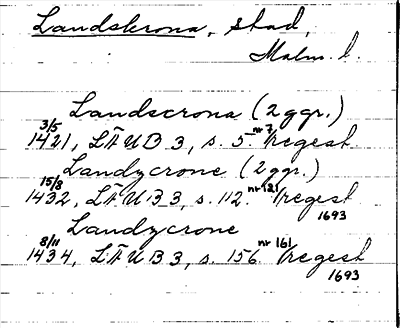 Landskrona, stad,
Malm. l.
Landscrona (2 ggr.)
3/5
1421, LÄUB 3, s. 5. nr 7/regest
Landzcrone (2 ggr.)
15/8
1432, LÄUB 3, s. 112. nr 121/regest
1693
Landzcrone
8/11
1434, LÄUB 3, s. 156. nr 161/regest
1693